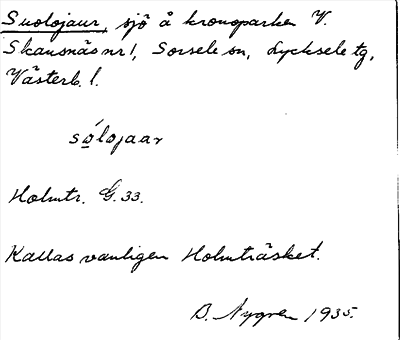 Suolojaur, sjö å kronoparken V.
Skansnäs nr 1, Sorsele sn, Lycksele tg,
Västerb. l.
só̲lojaar
Holmtr. G. 33.
Kallas vanligen Holmträsket.
B. Nygren 1935.